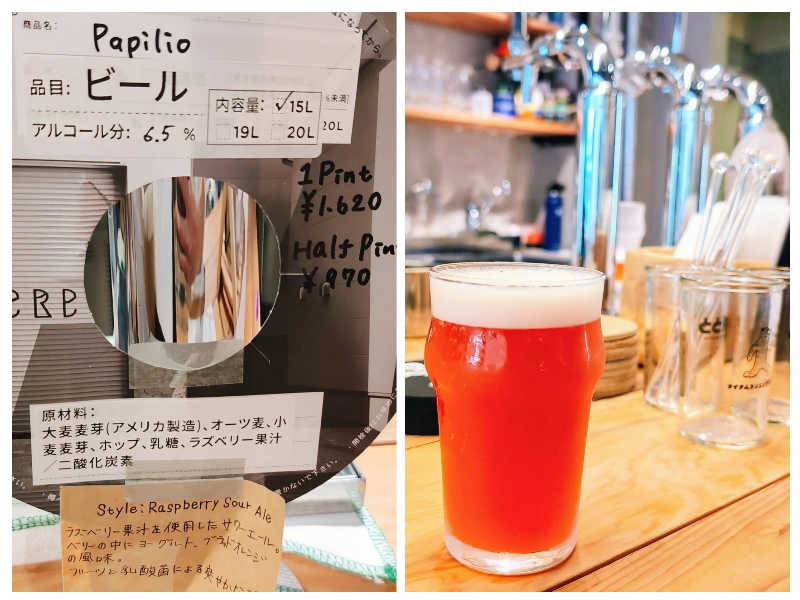 商品名：
Papilio
になってから。
品目: ビール
内容量: ✓15L
%未満
アルコール分: 6.5 %
19L 20L
20L
1 Pint
¥1.620
Half Pin
¥,970
原材料：
大麦麦芽(アメリカ製造)、オーツ麦、小
麦麦芽、ホップ、乳糖、ラズベリー果汁
／二酸化炭素
かないで下さい。
Style: Raspberry Sour Ale
ラズベリー果汁を使用したサワーエール。
ベリーの中にヨーグルト、ブラッドオレンジ
の風味。
フルーツと乳酸菌による爽やか